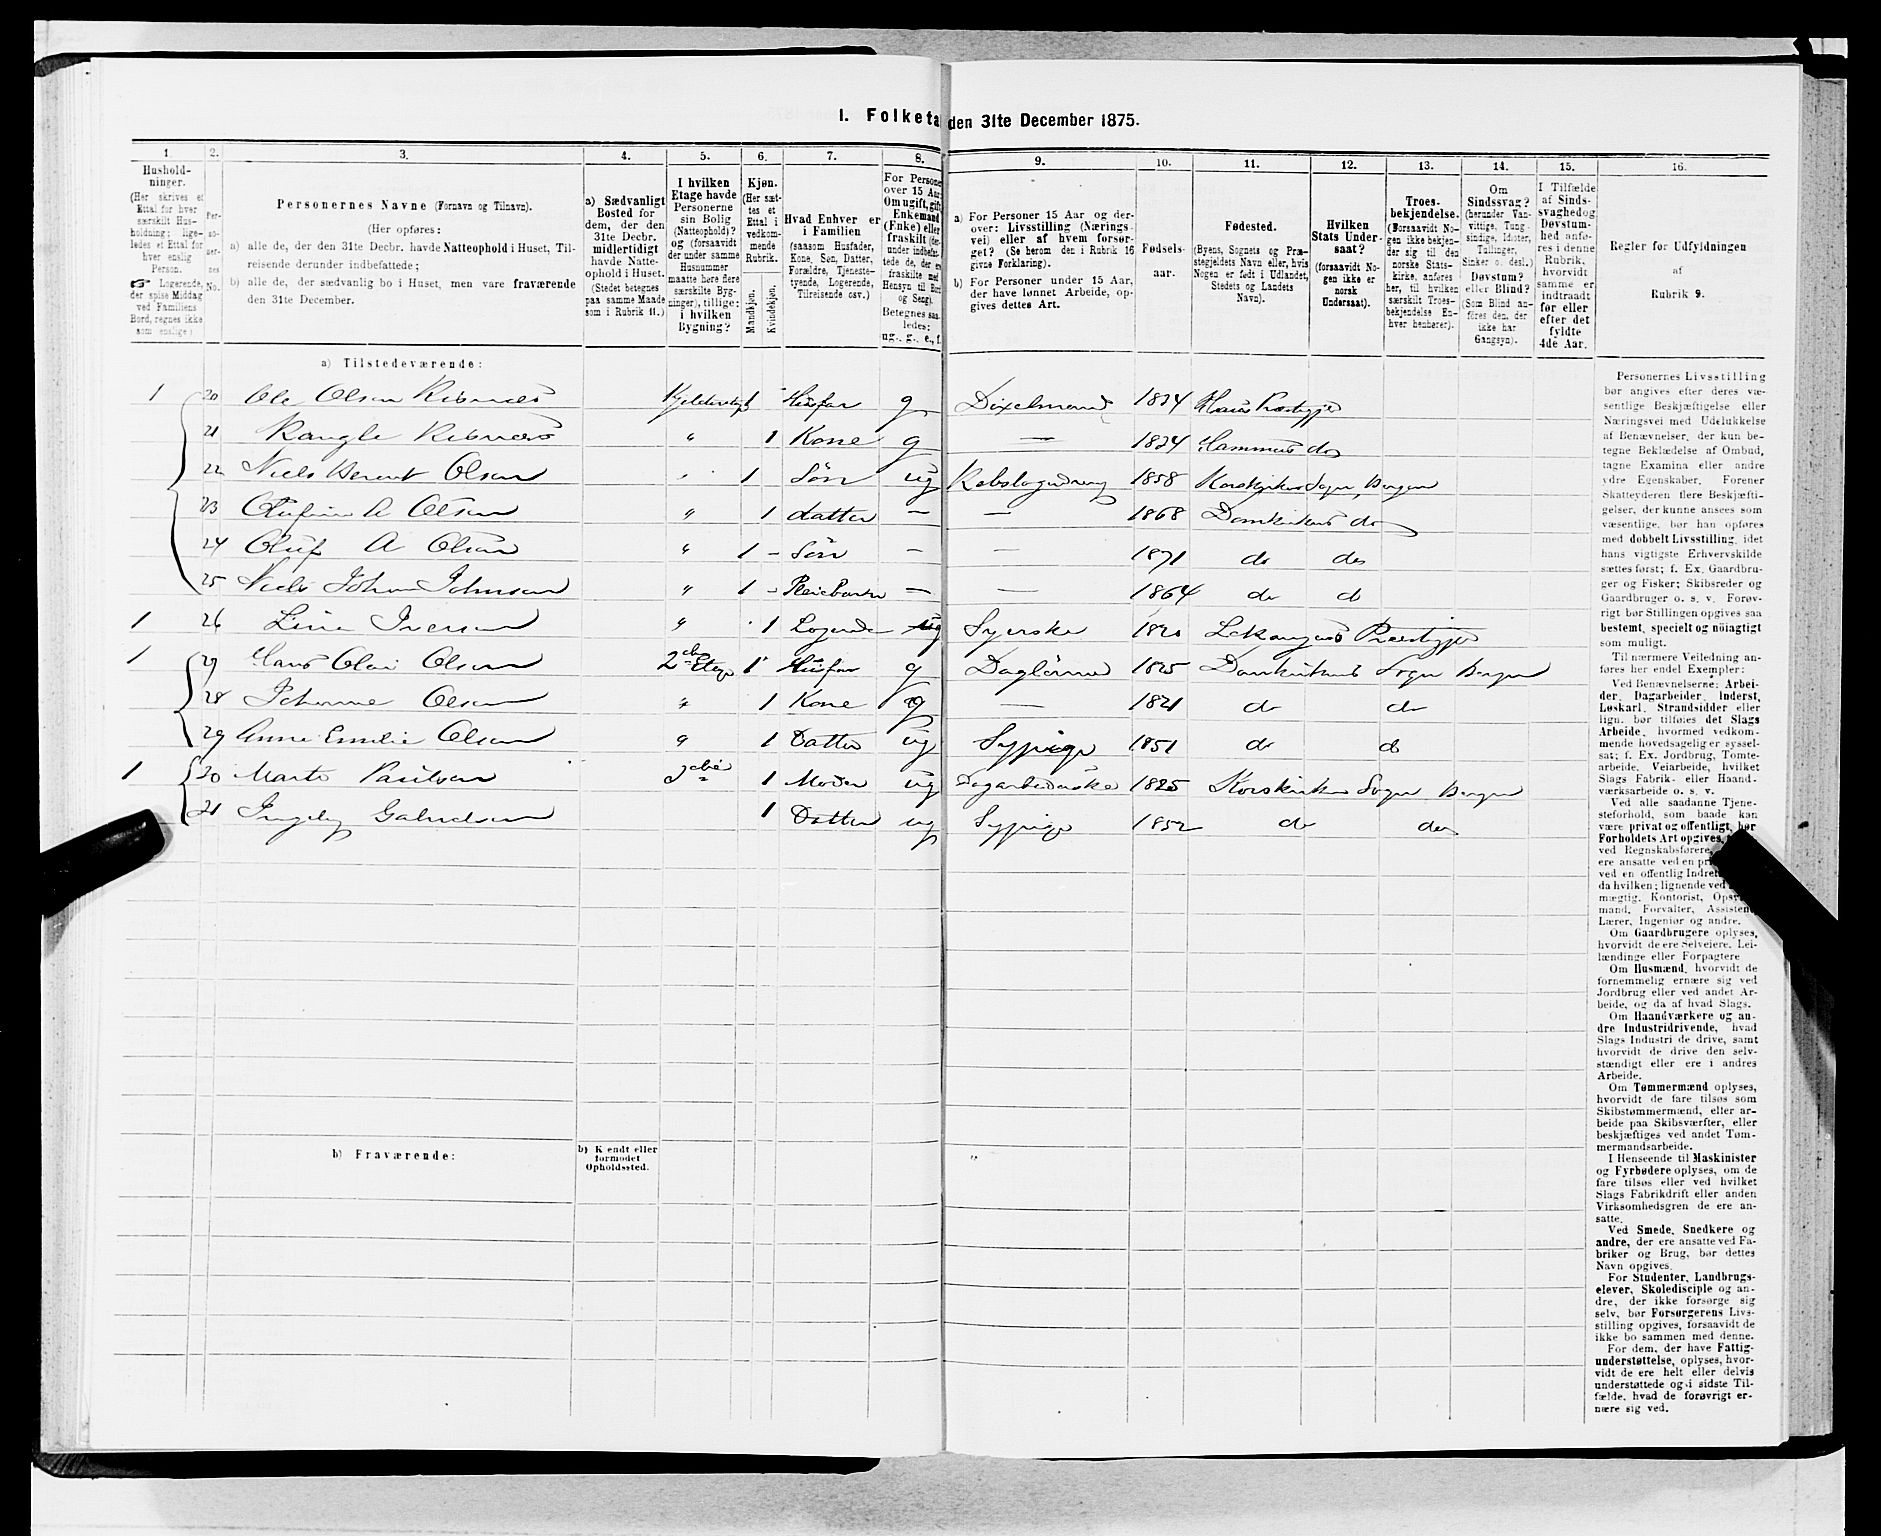 I. Folketa den 31te December 1875.
1. 2. 3. 4. 5. 6. 7. 8. 9. 10. 11. 12. 13. 14. 15. 16.
Hushold-
ninger.
(Her skrives et
Ettal for hver
særskilt Hus-
holdning; lige-
ledes et Ettal for
hver enslig
Person.
☛ Logerende,
der spise Middag
ved Familiens
Bord, regnes ikke
som enslige.)
Per-
so-
ner-
nes
No.
Personernes Navne (Fornavn og Tilnavn).
(Her opføres:
a) alle de, der den 31te Decbr. havde Natteophold i Huset, Til-
reisende derunder indbefattede;
b) alle de, der sædvanlig bo i Huset, men vare fraværende
den 31te December.
a) Sædvanligt
Bosted for
dem, der den
31te Decbr.
midlertidigt
havde Natte-
ophold i Huset.
(Stedet betegnes
paa samme Maade
som i Rubrik 11.)
I hvilken
Etage havde
Personerne
sin Bolig
(Natteophold)?
og (forsaavidt
der under samme
Husnummer
maatte høre flere
særskilte Byg-
ninger), tillige:
i hvilken
Bygning?
Kjøn.
(Her sæt-
tes et
Ettal i
vedkom-
mende
Rubrik.
Mandkjøn.
Kvindekjøn.
Hvad Enhver er
i Familien
(saasom Husfader,
Kone, Søn, Datter,
Forældre, Tjeneste-
tyende, Logerende,
Tilreisende osv.)
For Persone
over 15 Aar
Om ugift, gift
Enkemand
(Enke) eller
fraskilt (der-
under indbefat-
tede de, der er
fraskilte med
Hensyn til Bord
og Seng).
Betegnes saa-
ledes:
ug., g., e., f.
a) For Personer 15 Aar og der-
over: Livsstilling (Nærings-
vei) eller af hvem forsør-
get? (Se herom den i Rubrik 16
givne Forklaring).
b) For Personer under 15 Aar,
der have lønnet Arbeide, op-
gives dettes Art.
Fødsels-
aar.
Fødested.
(Byens, Sognets og Præ-
stegjeldets Navn eller, hvis
Nogen er født i Udlandet,
Stedets og Landets
Navn).
Hvilken
Stats Under-
saat?
(forsaavidt No-
gen ikke er
norsk
Undersaat).
Troes-
bekjendelse.
(Forsaavidt No-
gen ikke bekjen-
der sig til den
norske Stats-
kirke, anføres
her, til hvilken
særskilt Troes-
bekjendelse En-
hver henhører).
Om
Sindssvag?
(herunder Van-
vittige, Tung-
sindige, Idioter,
Tullinger,
Sinker o. desl.)
Døvstum?
eller Blind?
(Som Blind an-
føres den, der
ikke har
Gangsyn).
I Tilfælde
af Sinds-
svaghed og
Døvstum-
hed anfø-
res i denne
Rubrik,
hvorvidt
samme er
indtraadt
før eller
efter det
fyldte
4de Aar.
Regler for Udfyldningen
af
Rubrik 9.
a) Tilstedeværende:
1 20 Ole Olsen Risnæs 1 Husfar g 1824 Haus Præstegjæ
21 Risnæs " 1 Kone g — 1824 Hammers do
22 Niels Berent Olsen " 1 Søn ug 1858 Korskirkens Sogn, Bergen
23 A Olsen " 1 datter — — 1868 Domkirkens do
24 Oluf A Olsen " 1 – Søn — — 1871 do do
25 Niels Johan Johnsen " 1 – — — 1864 do do
1 26 Line Iversen " 1 Logerende ug Syerske 1820 Præstegje
1 27 Hans Olai Olsen 2den Etage 1 Husfar g 1825 Domkirkens Sogn Bergen
28 Johanne Olsen " 1 Kone g — 1821 do do
29 Anne Emilie Olsen " 1 Datter ug Sypige 1851 do do
1 30 Marte Paulsen 1 Moder ug 1825 Korskirkens Sogn Bergen
31 1 Datter ug Sypige 1852 do do
b) Fraværende:
b) Kjendt eller
formodet
Opholdssted.
Personernes Livsstilling
bør angives efter deres væ-
sentlige Beskjæftigelse eller
Næringsvei med Udelukkelse
af Benævnelser, der kun be-
tegne Beklædelse af Ombud,
tagne Examina eller andre
ydre Egenskaber. Forener
Skatteyderen flere Beskjæfti-
gelser, der kunne ansees som
væsentlige, bør han opføres
med dobbelt Livsstilling, idet
hans vigtigste Erhvervskilde
sættes først; f. Ex. Gaardbru-
ger og Fisker; Skibsreder og
Gaardbruger o. s. v. Forøv-
rigt bør Stillingen opgives saa
bestemt, specielt og nøiagtigt
som muligt.
Til nærmere Veiledning an-
føres her endel Exempler:
Ved Benævnelserne: Arbei-
der, Dagarbeider, Inderst,
Løskarl, Strandsidder eller
lign. bør tilføies det Slags
Arbeide, hvormed vedkom-
mende hovedsagelig er syssel-
sat; f. Ex. Jordbrug, Tomte-
arbeide, Veiarbeide, hvilket
Slags Fabrik- eller Haand-
værksarbeide o. s. v.
Ved alle saadanne Tjene-
steforhold, som baade kan
være privat og offentligt, bør
Forholdets Art opgives,
ved Regnskabsførere,
ere ansatte ved en pri
ved en offentlig Indre
da hvilken; lignende ved
mægtig, Kontorist, Opsy
mand, Forvalter, Assistent,
Lærer, Ingeniør og andre.
Om Gaardbrugere oplyses,
hvorvidt de ere Selveiere, Lei-
lændinge eller Forpagtere
Om Husmænd, hvorvidt de
fornemmelig ernære sig ved
Jordbrug eller ved andet Ar-
beide, og da af hvad Slags.
Om Haandværkere og an-
dre Industridrivende, hvad
Slags Industri de drive, samt
hvorvidt de drive den selv-
stændigt eller ere i andres
Arbeide.
Om Tømmermænd oplyses,
hvorvidt de fare tilsøs som
Skibstømmermænd, eller ar-
beide paa Skibsværfter, eller
beskjæftiges ved andet Tøm-
mermandsarbeide.
I Henseende til Maskinister
og Fyrbødere oplyses, om de
fare tilsøs eller ved hvilket
Slags Fabrikdrift eller anden
Virksomhedsgren de ere an-
satte.
Ved Smede, Snedkere og
andre, der ere ansatte ved Fa-
briker og Brug, bør dettes
Navn opgives.
For Studenter, Landbrugs-
elever, Skoledisciple og an-
dre, der ikke forsørge sig
selv, bør Forsørgerens Livs-
stilling opgives, forsaavidt de
ikke bo sammen med denne.
For dem, der have Fattig-
understøttelse, oplyses, hvor-
vidt de ere helt eller delvis
understøttede og i sidste Til-
fælde, hvad de forøvrigt er-
nære sig ved.